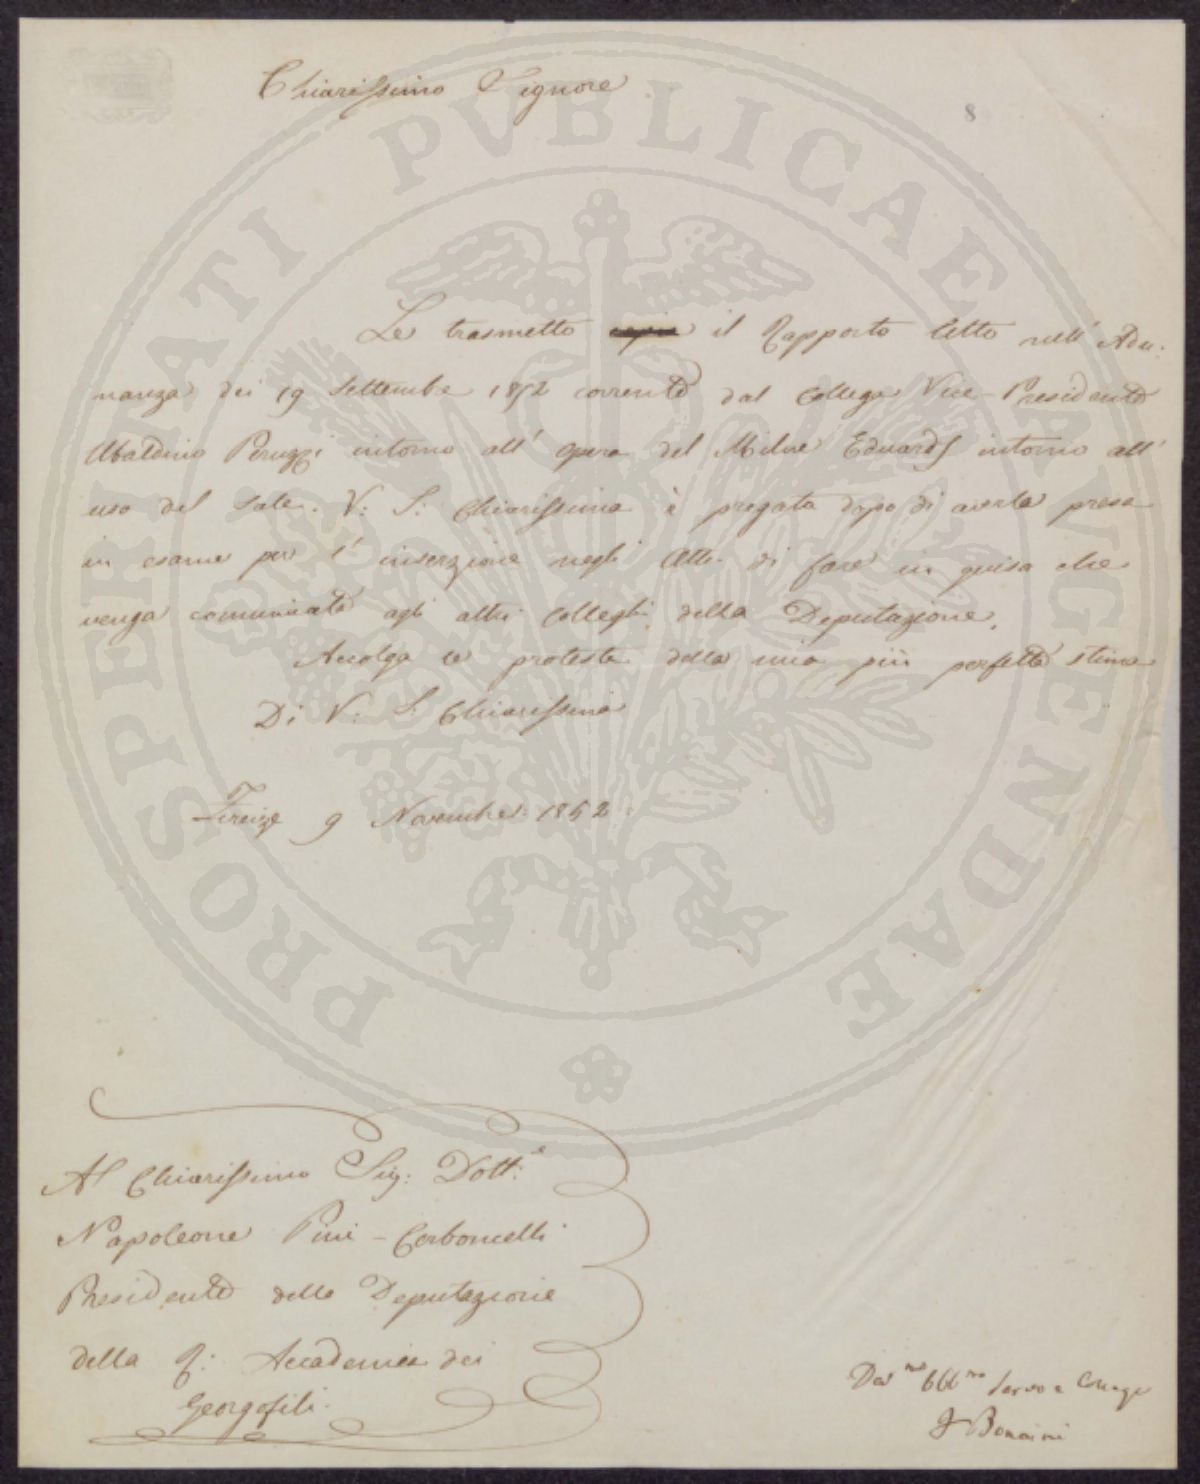 Chiarissimo Signore
8
Le trasmetto copia il Rapporto letto nell' Adu:
nanza dei 19 Settembre 1852 corrente dal Collega Vice-Presidente
Ubaldino Peruzzi intorno all' opera del Milne Eduards intorno all'
uso del sale. V: S: Chiarissima è pregata dopo di averla presa
in esame per l' inserzione negli Atti di fare in guisa che
venga comunicata agli altri Colleghi della Deputazione.
Accolga le proteste della mia più perfetta stima
Di V: S: Chiarissima
Firenze 9 Novembre 1852
Al Chiarissimo Sig: Dott:e
Napoleone Pini - Corboncelli
Presidente della Deputazione
della R: Accademia dei
Georgofili.
Dev mo Obb mo Servo e Collega
F Bonaini
PROSPERITATI PVBLICAE AVGENDAE